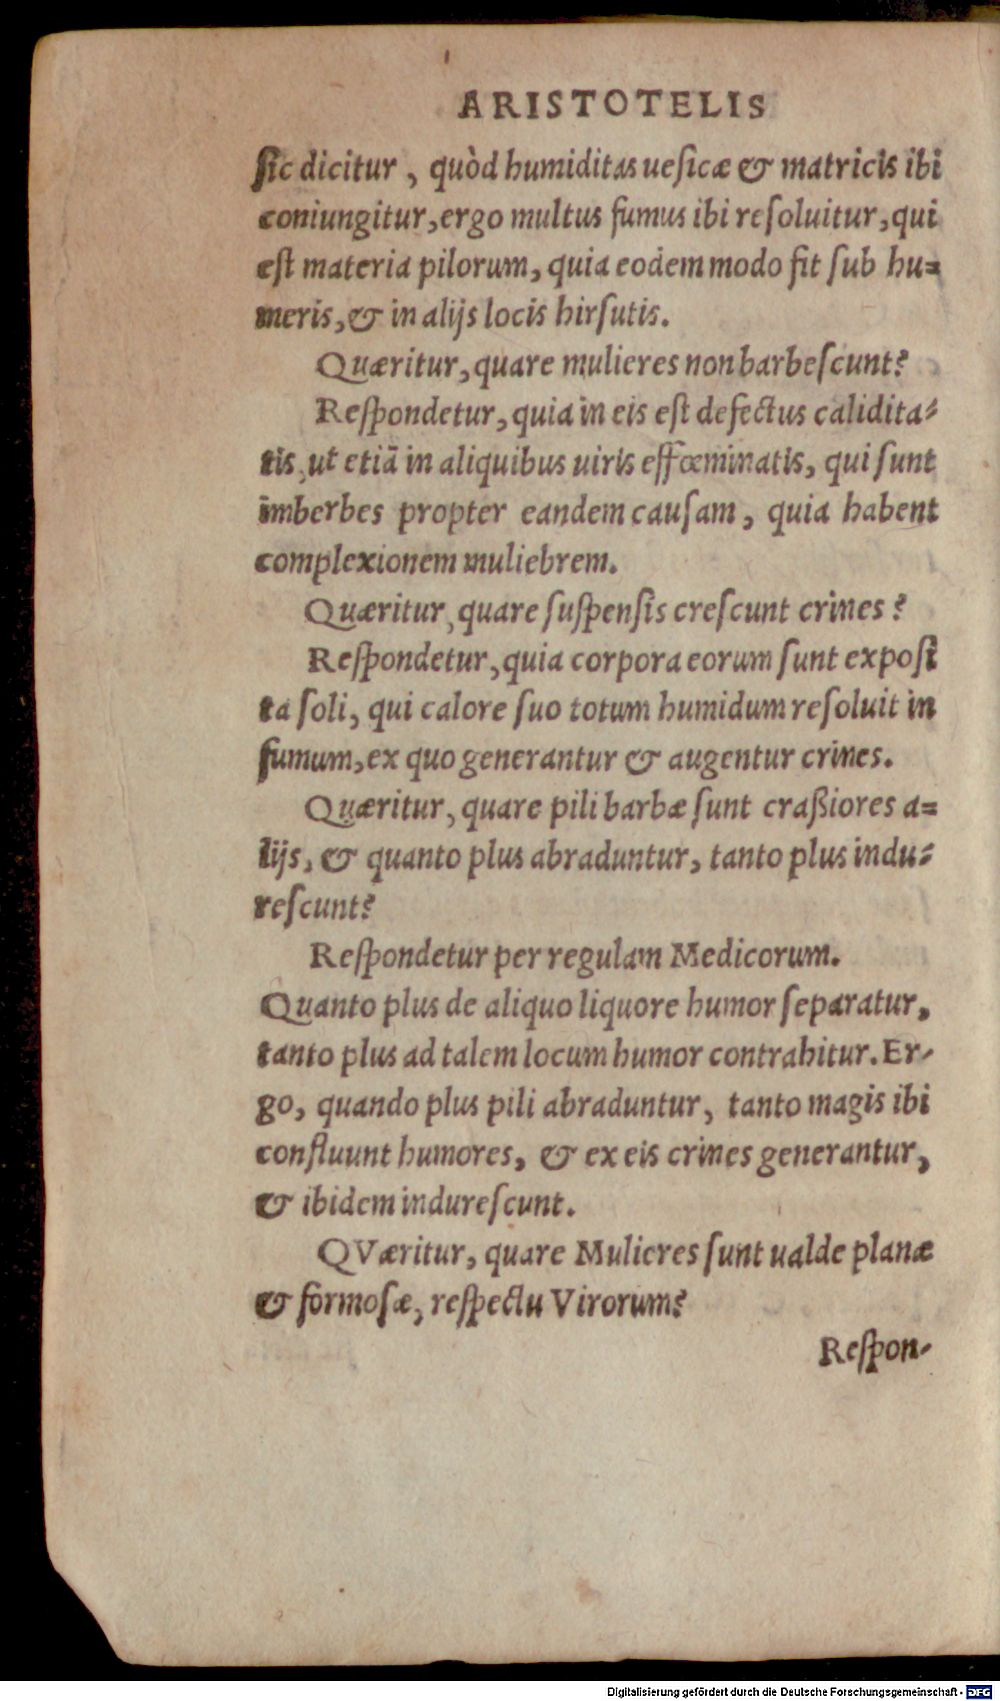 ARISTOTELIS
ſic dicitur, quòd humiditas ueſicæ & matricis ibi
coniungitur, ergo multus fumus ibi reſoluitur, qui
eſt materia pilorum, quia eodem modo fit ſub hu=
meris, & in alijs locis hirſutis.
Quæritur, quare mulieres non barbeſcunt?
Reſpondetur, quia in eis eſt defectus calidita-
tis, ut etiā in aliquibus uiris effœminatis, qui ſunt
imberbes propter eandem cauſam, quia habent
complexionem muliebrem.
Quæritur, quare ſuſpenſis creſcunt crines?
Reſpondetur, quia corpora eorum ſunt expoſi
ta ſoli, qui calore ſuo totum humidum reſoluit in
fumum, ex quo generantur & augentur crines.
Quæritur, quare pili barbæ ſunt craßiores a=
lijs, & quanto plus abraduntur, tanto plus indu-
reſcunt?
Reſpondetur per regulam Medicorum.
Quanto plus de aliquo liquore humor ſeparatur,
tanto plus ad talem locum humor contrahitur. Er-
go, quando plus pili abraduntur, tanto magis ibi
confluunt humores, & ex eis crines generantur,
& ibidem indureſcunt.
QVæritur, quare Mulieres ſunt ualde planæ
& formoſæ, reſpectu Virorum?
Reſpon-
Digitalisierung gefördert durch die Deutsche Forschungsgemeinschaft - DFG